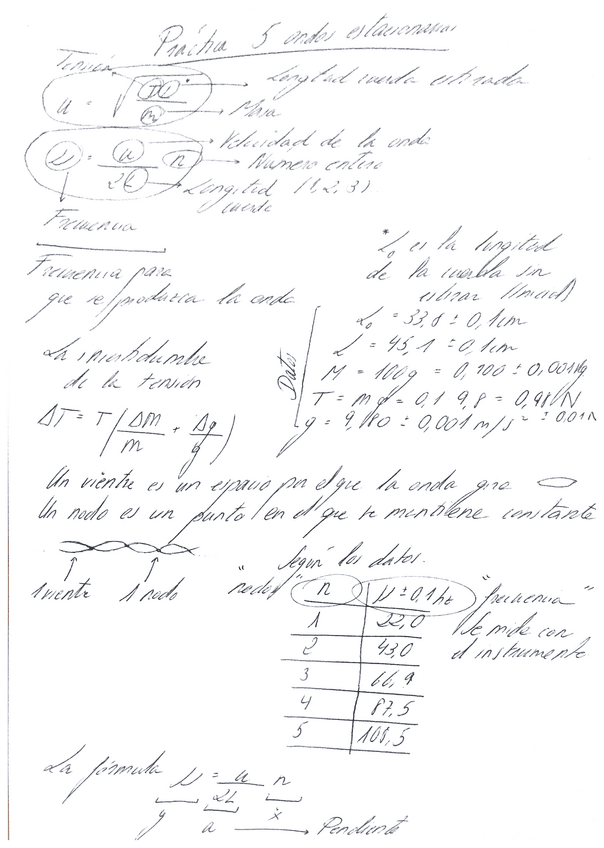 Práctica 5 ondas estacionarias
Tensión
u = √(TL / m)
Longitud cuerda estirada
Masa
ν = u / 2L n
Velocidad de la onda
Numero entero (1, 2, 3)
Longitud cuerda
Frecuencia
Frecuencia para
que se produzca la onda
* L₀ es la longitud
de la cuerda sin
estirar
Datos
L₀ = 33,8 ± 0,1cm
L = 45,1 ± 0,1cm
M = 100g = 0,100 ± 0,001kg
T = m g = 0,1 9,8 = 0,98N ± 0,01N
g = 9,80 ± 0,001 m/s²
La incertidumbre
de la tensión
ΔT = T (ΔM / m + Δg / g)
Un vientre es un espacio por el que la onda gira
Un nodo es un punto en el que se mantiene constante
1 vientre 1 nodo
Según los datos.
"nodos" n ν ± 0,1 hz "frecuencia"
1 22,0
2 43,0
3 66,9
4 87,5
5 108,5
Se mide con
el instrumento
La fórmula ν = u / 2L n
y a x
Pendiente